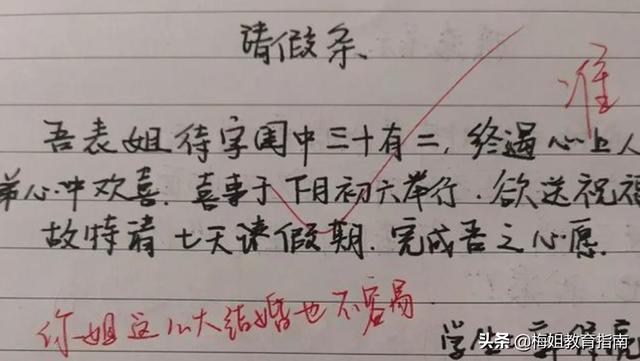 请假条
准
吾表姐待字闺中三十有二，终遇心上人
弟心中欢喜．喜事于下月初六举行．欲送祝福
故特请七天请假期．完成吾之心愿．
你姐这么大结婚也不容易
学生
头条 @梅姐教育指南